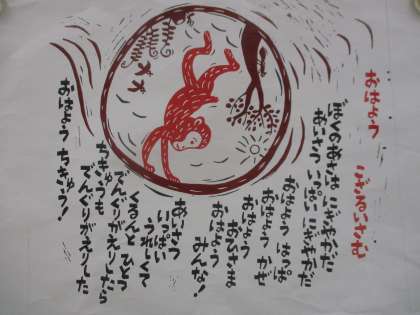 おはよう　ござるいさむ
ぼくのあさは　にぎやかだ
あいさつ　いっぱい　にぎやかだ
おはよう　はっぱ
おはよう　かぜ
おはよう　おひさま
おはよう　みんな！
あいさつ
いっぱい
うれしくて
くるんと　ひとつ
でんぐりがえりしたら
ちきゅうも
でんぐりがえりした
おはよう　ちきゅう！